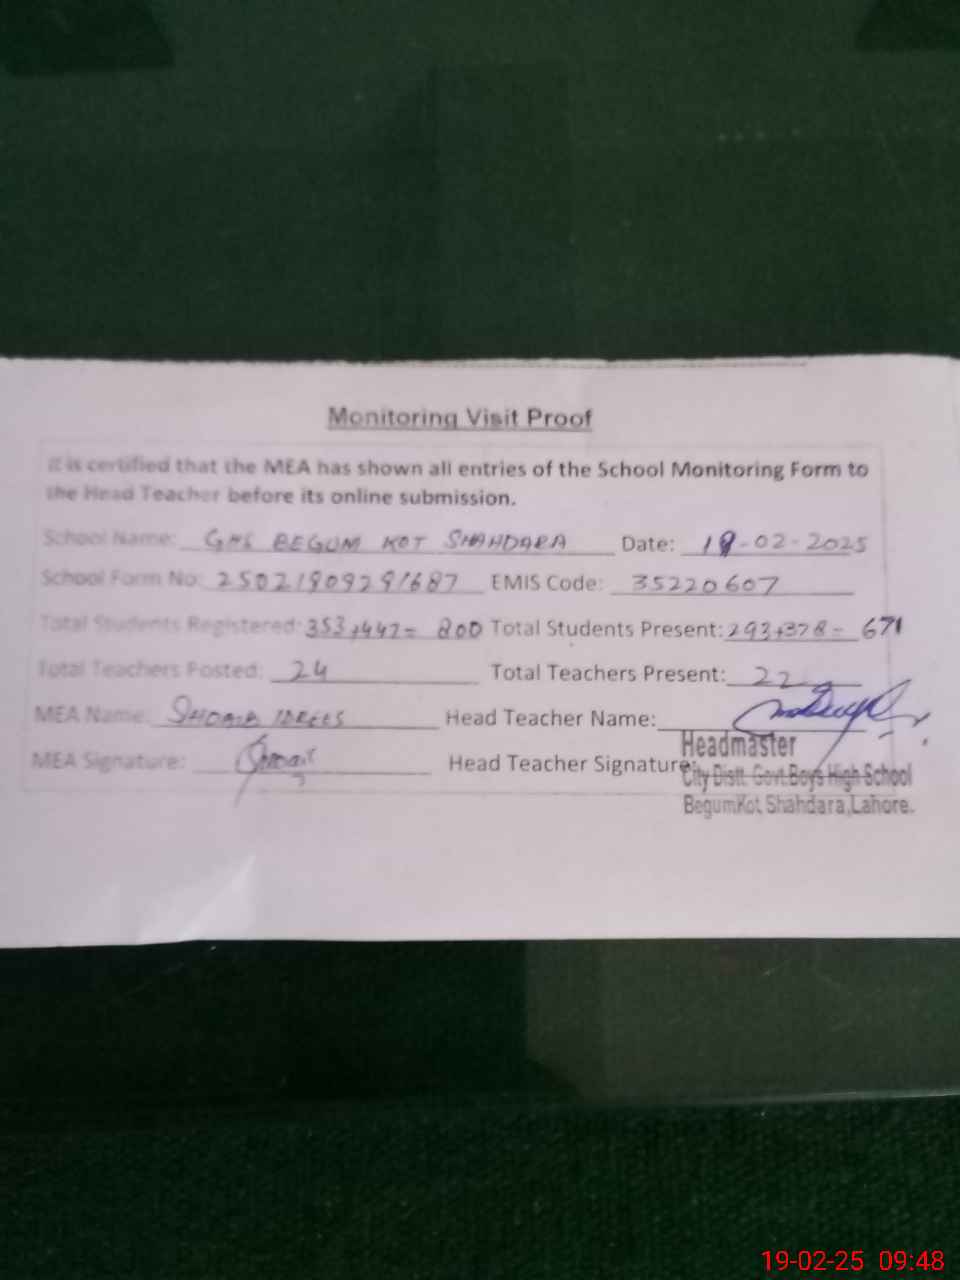 Monitoring Visit Proof
It is certified that the MEA has shown all entries of the School Monitoring Form to
the Head Teacher before its online submission.
School Name: GHS BEGUM KOT SHAHDARA Date: 19-02-2025
School Form No: 25021909291687 EMIS Code: 35220607
Total Students Registered: 353+447= 800 Total Students Present: 293+378- 671
Total Teachers Posted: 24 Total Teachers Present: 22
MEA Name: SHOAIB IDREES Head Teacher Name:
MEA Signature: Shoaib Head Teacher Signature:
Headmaster
City Distt. Govt.Boys High School
BegumKot, Shahdara,Lahore.
19-02-25 09:48